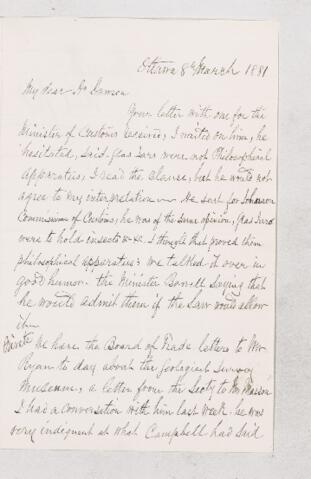 Ottawa 8th March 1881
My dear Dr Dawson
Your letter with one for the
Minister of Customs received, I waited on him, he
hesitated, said glass Jars were not Philosophical
Apparatus, I read the Clause, but he would not
agree to my interpretation. He sent for Johnson
Commissioner of Customs, he was of the same opinion, glass Jars
were to hold insects &c &c. I thought that proved them
philosophical apparatus: we talked it over in
good humor. the Minister Bowell saying that
he would admit them if the Law would allow
it
Private We have the Board of Trade letters to Mr
Ryan to day about the Geological Survey
Museum, a letter from the Secty to Mr Masson
I had a conversation with him last week. he was
very indignant at what Campbell had said